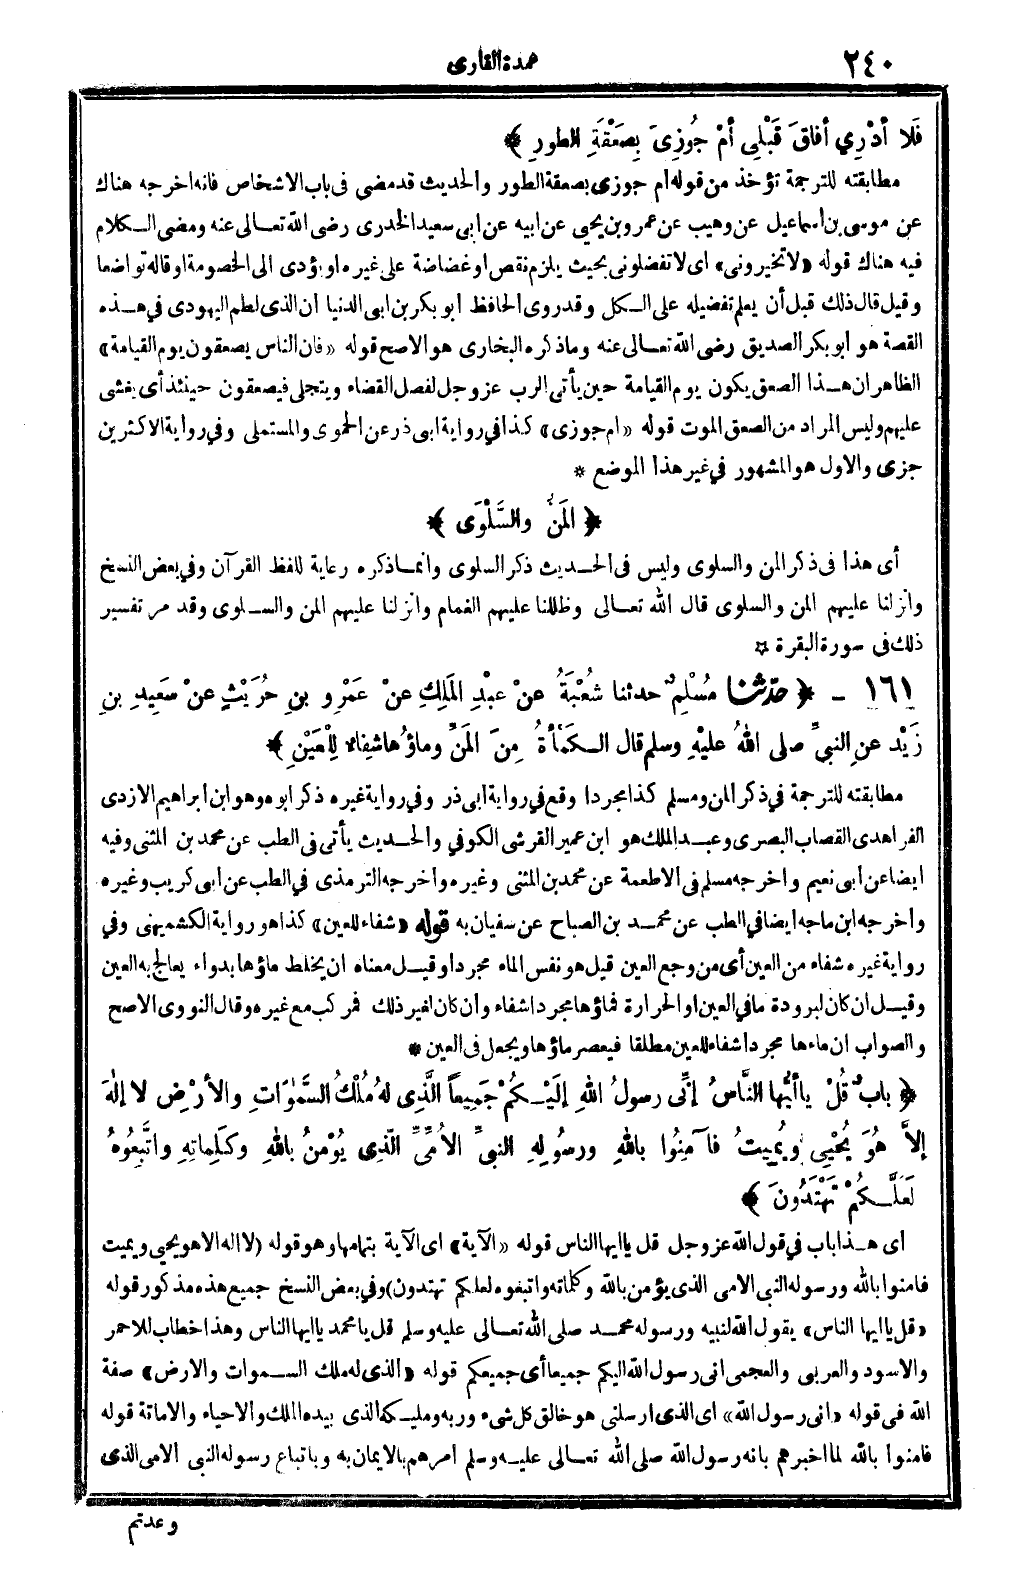 ٢٤٠
عمدة القارى
فَلا أدْرِي أفاقَ قَبْلِي أمْ جُوزِىَ بِصَعْقَةِ الطورِ ﴾
مطابقته للترجمة تؤخذ من قوله أم جوزى بصعقة الطور والحديث قد مضى فى باب الاشخاص فانه اخرجه هناك
عن موسى بن اسماعيل عن وهيب عن عمرو بن يحيى عن ابيه عن ابى سعيد الخدرى رضى الله تعالى عنه ومضى الكلام
فيه هناك قوله «لا تخيرونى» اى لا تفضلونى بحيث يلزم نقص او غضاضة على غيره او يؤدى الى الخصومة او قاله تواضعا
وقيل قال ذلك قبل أن يعلم تفضيله على الكل وقد روى الحافظ أبو بكر بن ابى الدنيا ان الذى لطم اليهودى فى هذه
القصة هو ابو بكر الصديق رضى الله تعالى عنه وما ذكره البخارى هو الاصح قوله «فان الناس يصعقون يوم القيامة»
الظاهر ان هذا الصعق يكون يوم القيامة حين يأتى الرب عز وجل لفصل القضاء ويتجلى فيصعقون حينئذ أى يغشى
عليهم وليس المراد من الصعق الموت قوله «ام جوزى» كذا فى رواية ابى ذر عن الحموى والمستملى وفى رواية الاكثرين
جزى والاول هو المشهور فى غير هذا الموضع *
﴿ المَنَّ والسَّلْوَى ﴾
أى هذا فى ذكر المن والسلوى وليس فى الحديث ذكر السلوى وانما ذكره رعاية للفظ القرآن وفى بعض النسخ
وأنزلنا عليهم المن والسلوى قال الله تعالى وظللنا عليهم الغمام وأنزلنا عليهم المن والسلوى وقد مر تفسير
ذلك فى سورة البقرة *
١٦١ - ﴿ حدّثنا مُسْلِمٌ حدثنا شُعْبَةُ عنْ عبْدِ المَلِكِ عنْ عَمْرِو بنِ حُرَيْثٍ عنْ سَعِيدِ بنِ
زَيْد عنِ النبيِّ صلى اللهُ عليْهِ وسلم قال الكَمْأةُ مِنَ المَنِّ وماؤُها شِفاءٌ لِلْعَيْنِ ﴾
مطابقته للترجمة فى ذكر المن ومسلم كذا مجردا وقع فى رواية ابى ذر وفى رواية غيره ذكر ابوه وهو ابن ابراهيم الازدى
الفراهدى القصاب البصرى وعبد الملك هو ابن عمير القرشى الكوفى والحديث يأتى فى الطب عن محمد بن المثنى وفيه
ايضا عن أبى نعيم واخرجه مسلم فى الاطعمة عن محمد بن المثنى وغيره واخرجه الترمذى فى الطب عن ابى كريب وغيره
واخرجه ابن ماجه ايضا فى الطب عن محمد بن الصباح عن سفيان به قوله «شفاء للعين» كذا هو رواية الكشميهنى وفى
رواية غيره شفاء من العين أى من وجع العين قيل هو نفس الماء مجردا وقيل معناه ان يخلط ماؤها بدواء يعالج به العين
وقيل ان كان لبرودة ما فى العين او الحرارة فماؤها مجردا شفاء وان كان لغير ذلك فمركب مع غيره وقال النووى الاصح
والصواب ان ماءها مجردا شفاء للعين مطلقا فيعصر ماؤها ويجعل فى العين *
﴿ بابٌ قُلْ ياأيُّها النَّاسُ إنِّى رسولُ اللهِ إلَيْكُمْ جَمِيعاً الَّذِى لهُ مُلْكُ السَّمٰوَاتِ والأرْضِ لا إلٰهَ
إلاَّ هُوَ يُحْيِى ويُمِيتُ فآمِنُوا باللهِ ورسُولِهِ النبيِّ الأُمِّيِّ الَّذِى يُؤْمنُ باللهِ وكَلِماتِهِ واتَّبِعُوهُ
لَعَلَّكُمْ تَهْتَدُونَ ﴾
اى هذا باب فى قول الله عز وجل قل يا ايها الناس قوله «الآية» اى الآية بتمامها وهو قوله (لا اله الا هو يحيى ويميت
فامنوا بالله ورسوله النبى الامى الذى يؤمن بالله وكلماته واتبعوه لعلكم تهتدون) وفى بعض النسخ جميع هذه مذكور قوله
«قل يا ايها الناس» يقول الله لنبيه ورسوله محمد صلى الله تعالى عليه وسلم قل يا محمد يا ايها الناس وهذا خطاب للاحمر
والاسود والعربى والعجمى انى رسول الله اليكم جميعا أى جميعكم قوله «الذى له ملك السموات والارض» صفة
الله فى قوله «انى رسول الله» اى الذى ارسلنى هو خالق كل شىء وربه ومليكه الذى بيده الملك والاحياء والاماتة قوله
فامنوا بالله لما اخبرهم بانه رسول الله صلى الله تعالى عليه وسلم امرهم بالايمان به وباتباع رسوله النبى الامى الذى
وعدتم